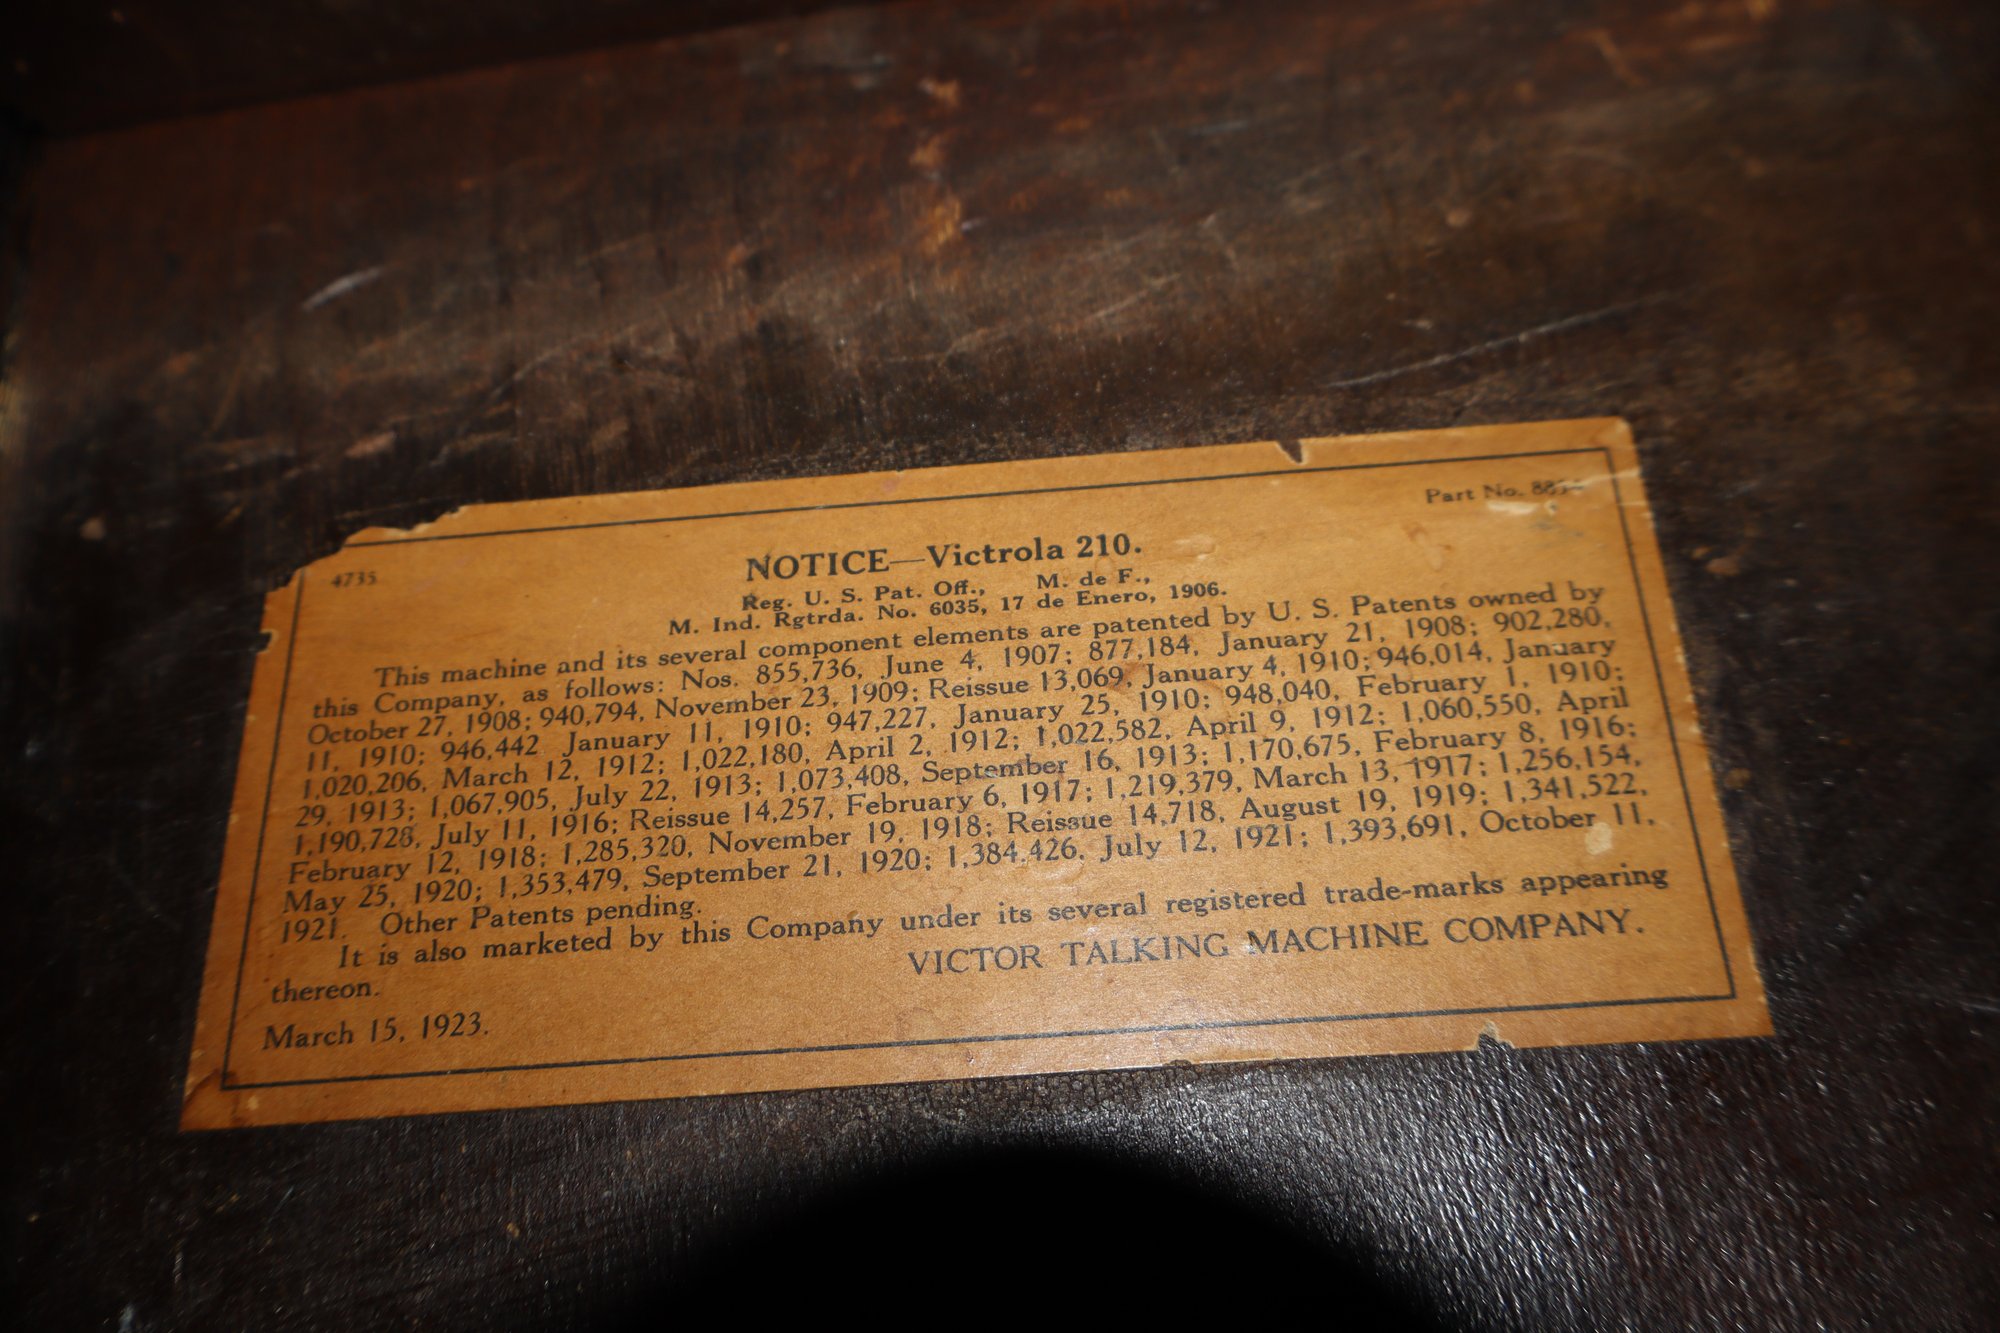 4735
Part No.
NOTICE—Victrola 210.
Reg. U. S. Pat. Off., M. de F.,
M. Ind. Rgtrda. No. 6035, 17 de Enero, 1906.
This machine and its several component elements are patented by U. S. Patents owned by
this Company, as follows: Nos. 855,736, June 4, 1907; 877,184, January 21, 1908; 902,280,
October 27, 1908; 940,794, November 23, 1909; Reissue 13,069, January 4, 1910; 946,014, January
11, 1910; 946,442 January 11, 1910; 947,227, January 25, 1910; 948,040, February 1, 1910;
1,020,206, March 12, 1912; 1,022,180, April 2, 1912; 1,022,582, April 9, 1912; 1,060,550, April
29, 1913; 1,067,905, July 22, 1913; 1,073,408, September 16, 1913; 1,170,675, February 8, 1916;
1,190,728, July 11, 1916; Reissue 14,257, February 6, 1917; 1,219,379, March 13, 1917; 1,256,154,
February 12, 1918; 1,285,320, November 19, 1918; Reissue 14,718, August 19, 1919; 1,341,522,
May 25, 1920; 1,353,479, September 21, 1920; 1,384,426, July 12, 1921; 1,393,691, October 11,
1921. Other Patents pending.
It is also marketed by this Company under its several registered trade-marks appearing
thereon.
VICTOR TALKING MACHINE COMPANY.
March 15, 1923.